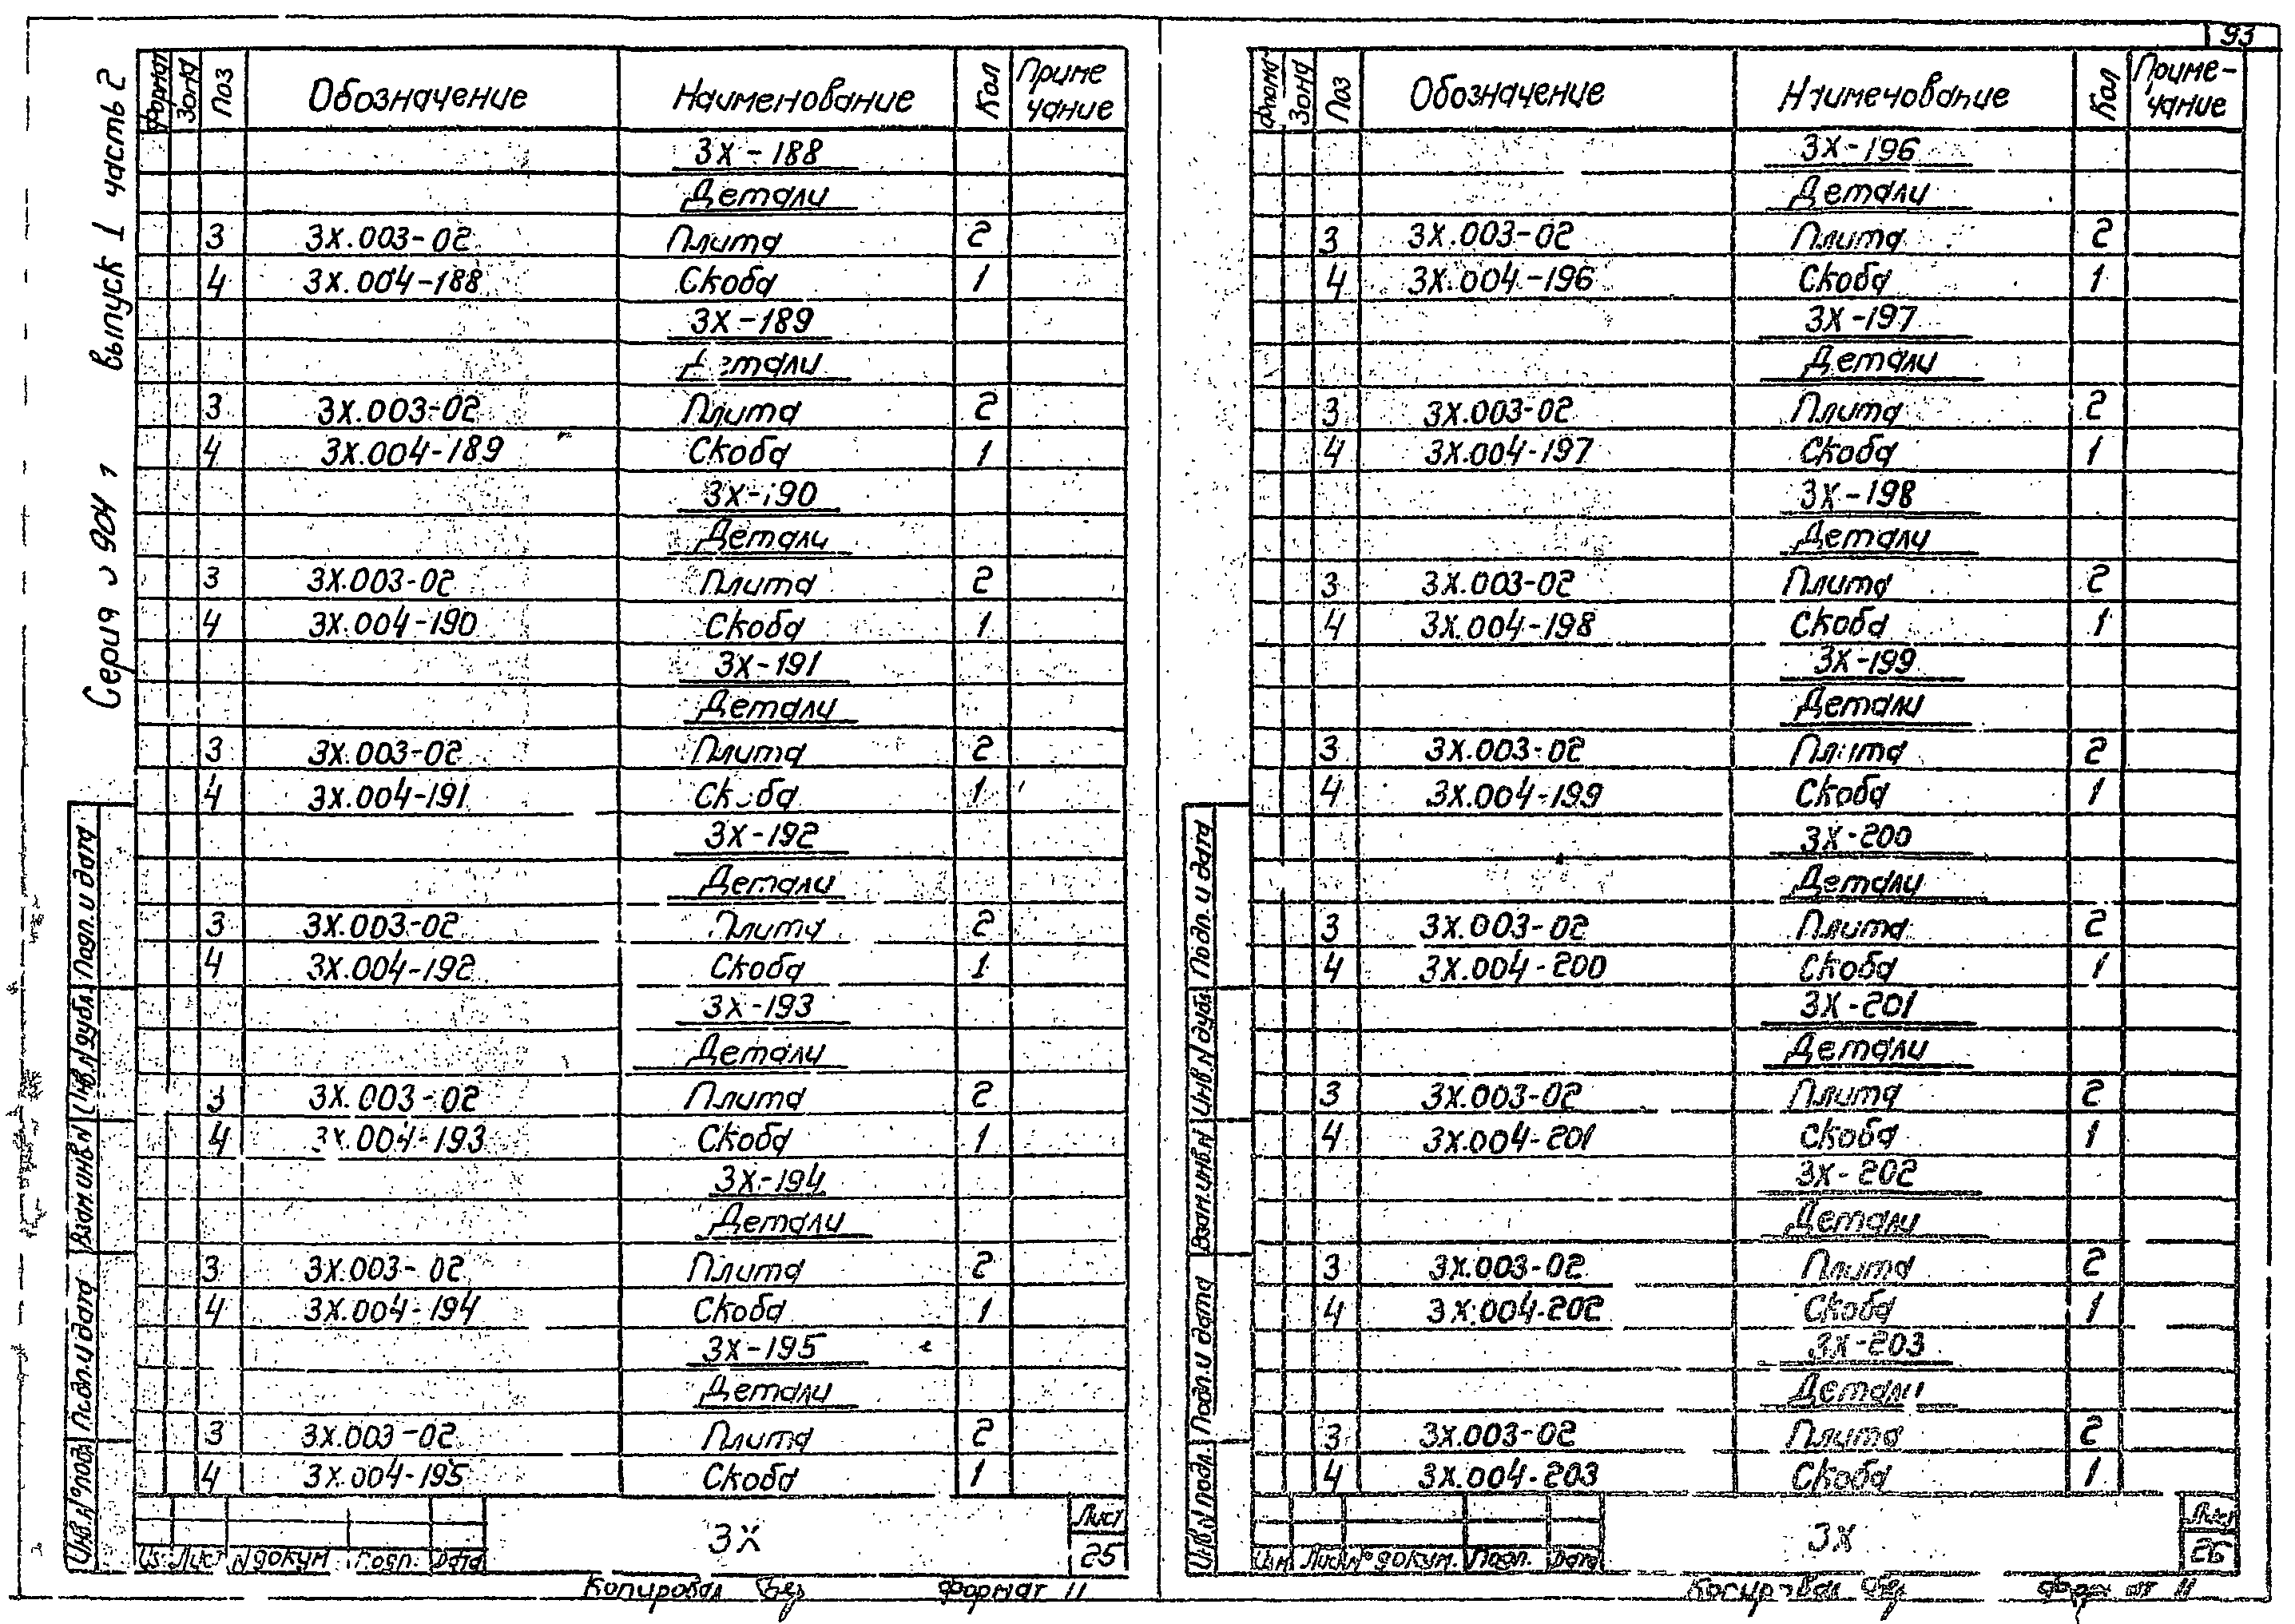 93
Серия 904 выпуск 1 часть 2
Формат Зона Поз Обозначение Наименование Кол Приме чание
3Х-188
Детали
3 3Х.003-02 Плита 2
4 3Х.004-188 Скоба 1
3Х-189
Детали
3 3Х.003-02 Плита 2
4 3Х.004-189 Скоба 1
3Х-190
Детали
3 3Х.003-02 Плита 2
4 3Х.004-190 Скоба 1
3Х-191
Детали
3 3Х.003-02 Плита 2
4 3Х.004-191 Скоба 1
3Х-192
Детали
3 3Х.003-02 Плита 2
4 3Х.004-192 Скоба 1
3Х-193
Детали
3 3Х.003-02 Плита 2
4 3Х.004-193 Скоба 1
3Х-194
Детали
3 3Х.003-02 Плита 2
4 3Х.004-194 Скоба 1
3Х-195
Детали
3 3Х.003-02 Плита 2
4 3Х.004-195 Скоба 1
Инв.N°подл Подп.и дата Взам.инв.N Инв.N дубл. Подп.и дата
Лист N докум. Подп. Дата
3Х
Лист
25
Копировал формат 11
Формат Зона Поз Обозначение Наименование Кол Приме-
чание
3Х-196
Детали
3 3Х.003-02 Плита 2
4 3Х.004-196 Скоба 1
3Х-197
Детали
3 3Х.003-02 Плита 2
4 3Х.004-197 Скоба 1
3Х-198
Детали
3 3Х.003-02 Плита 2
4 3Х.004-198 Скоба 1
3Х-199
Детали
3 3Х.003-02 Плита 2
4 3Х.004-199 Скоба 1
3Х-200
Детали
3 3Х.003-02 Плита 2
4 3Х.004-200 Скоба 1
3Х-201
Детали
3 3Х.003-02 Плита 2
4 3Х.004-201 Скоба 1
3Х-202
Детали
3 3Х.003-02 Плита 2
4 3Х.004-202 Скоба 1
3Х-203
Детали
3 3Х.003-02 Плита 2
4 3Х.004-203 Скоба 1
Инв.N подл. Подп.и дата Взам.инв.N Инв.N дубл. Подп.и дата
Изм Лист N° докум. Подп. Дата
3Х
Лист
26
Копировал Формат 11